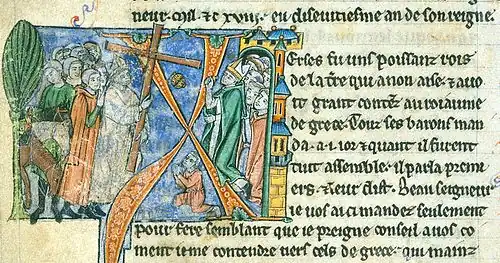 neur. mil. & c. xviij. eu diseuitiesme an de son reigne.
Erses fu uns poissanz rois
de la tre qui a non aise. & auo
it grant contẽz au roiaume
de grece. Tour ses barons man
da. a. i. ior & quant il furent
tuit assemble. il parla premi
ers. & leur dist. Beau seigneur
ie uos ai ci mandez seulement
pour fere semblant que ie preigne conseil a uos co
ment ie me contendre uers cels de grece. qui mainz